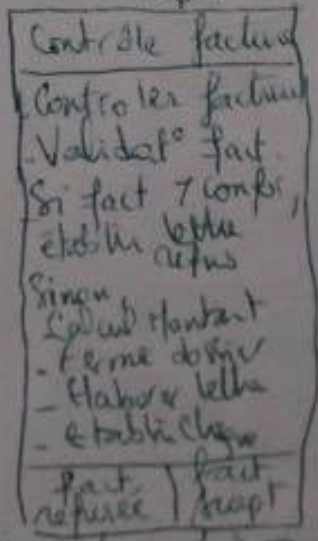 Contrôle factu
- Controler factur
- Validat° fact.
Si fact 7 confor,
établir lettre
refus
Sinon,
Calcul Montant
- Ferme dossier
- Elaborer lettre
- etablir cheque
fact refusée | fact accept